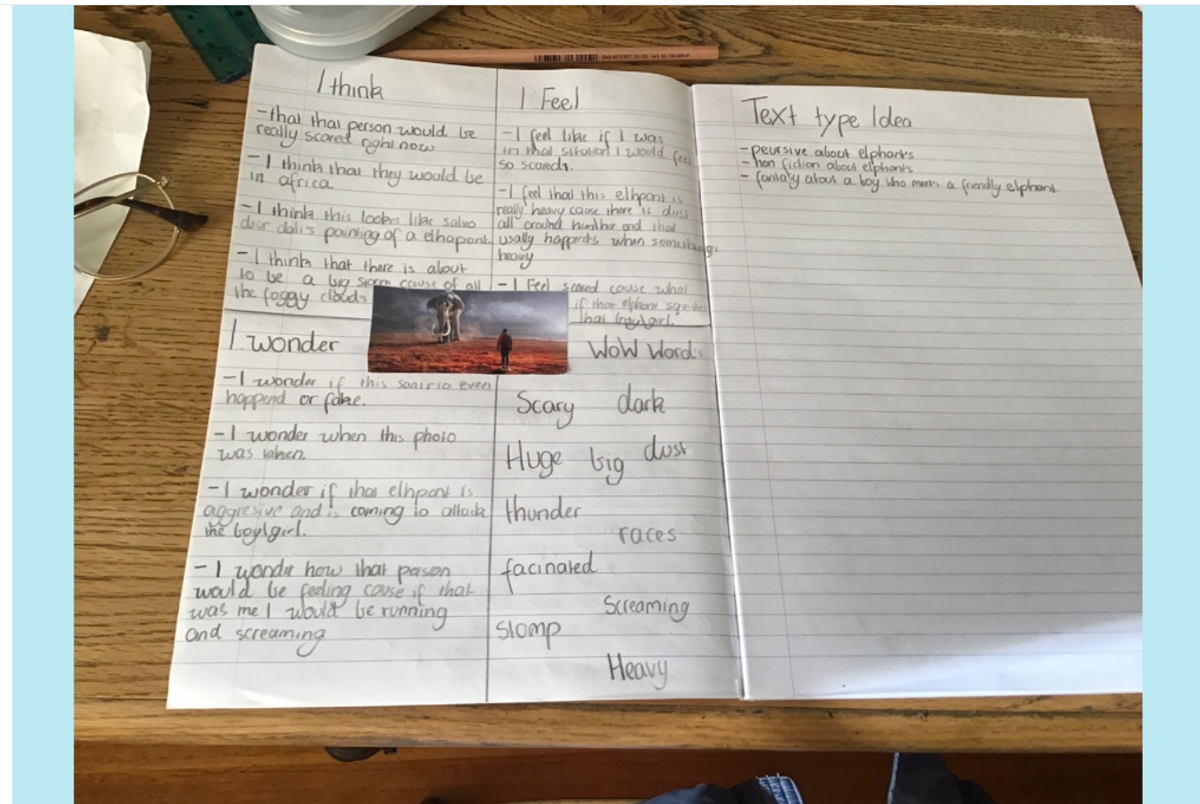 I think
-that that person would be
really scared right now
-I think that they would be
in africa
-I think this lookes like salvo
dour dali's painting of a elhapant
-I think that there is about
to be a big storm cause of all
the foggy clouds
I Feel
-I feel like if I was
in that sitution I would feel
so scared.
-I feel that this elhpant is
really heavy cause there is dust
all around him/her and that
usally happents when somethings
heavy
-I Feel scared cause what
if that elphant squishes
that boy/girl.
I wonder
-I wonder if this sanirio even
happend or fake.
-I wonder when this photo
was taken.
-I wonder if that elhpant is
aggresive and is coming to attack
the boy/girl.
-I wonder how that person
would be feeling cause if that
was me I would be running
and screaming
WoW Words
Scary dark
Huge big dust
thunder
races
facinated
Screaming
stomp
Heavy
Text type Idea
-peursive about elphants
-non fiction about elephants
-fantaly about a boy who meets a friendly elphant